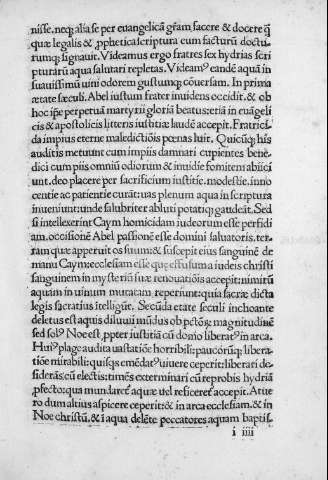 nisse, neq; alia se per euangelicā gr̄am facere & docere q̄
quæ legalis & ꝓphetica scriptura eum facturū doctu-
rumq; signauit. Videamus ergo fratres sex hydrias scri
pturarū aqua salutari repletas. Videamꝰ eandē aquā in
suauissimū uini odorem gustumq; cōuersam. In prima
ætate sæculi. Abel iustum frater inuidens occidit. & ob
hoc ip̄e perpetuā martyrii gloriā beatus: etiā in euāgeli
cis & apostolicis litteris iustitiæ laudē accepit. Fratrici-
da impius eternæ maledictiōis pœnas luit. Quicūq; his
auditis metuunt cum impiis damnari cupientes bene-
dici cum piis omniū odiorum & inuidiæ fomitem abiici
unt. deo placere per sacrificium iustitiæ. modestiæ. inno
centie ac patientie curāt: uas plenum aqua in scriptura
inueniunt: unde salubriter abluti potatiq; gaudeāt. Sed
si intellexerint Caym homicidam iudeorum esse perfidi
am. occisionē Abel passionē esse domini saluatoris. ter-
ram quæ apperuit os suum: & suscepit eius sanguinē de
manu Caym: ecclesiam esse quæ effusum a iudeis christi
sanguinem in mysteriū suæ renouatiōis accepit: nimirū
aquam in uinum mutatam reperiunt: quia sacræ dicta
legis sacratius ītelligūt. Secūda etate sæculi inchoante
deletus est aquis diluuii mūdus ob pctōꝝ magnitudinē
sed solꝰ Noe est ꝓpter iustitiā cū domo liberatꝰ in arca.
Huiꝰ plage audita uastatiōe horribili: paucorūq; libera
tiōe mirabili: quisqs emēdatꝰ uiuere ceperit: liberari de-
siderās: cū electis: timēs exterminari cū reprobis hydriā
ꝓfecto: qua mundaret̄ aquæ uel reficeret̄ accepit. At ue
ro dum altius aspicere ceperit: & in arca ecclesiam. & in
Noe christū. & ī aqua delēte peccatores aquam baptis-
i iiii